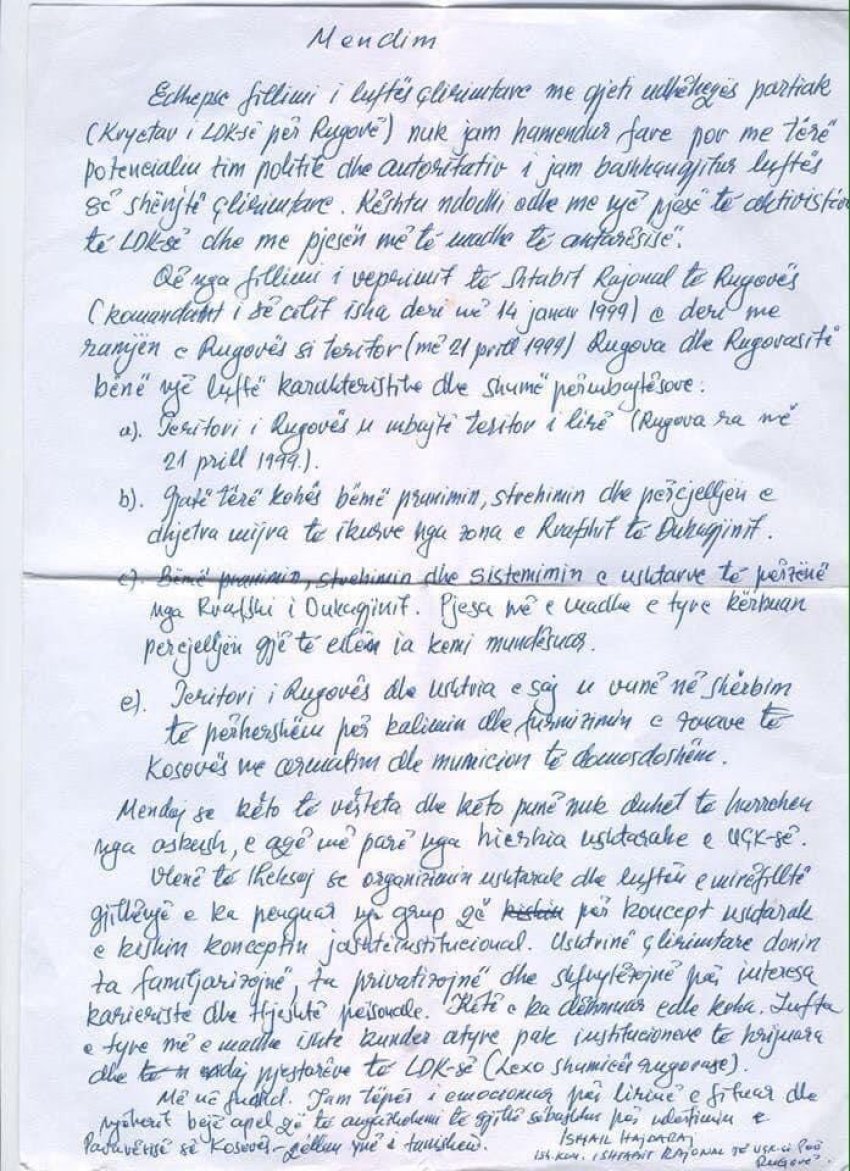 Mendim
Edhepse fillimi i luftës çlirimtare me gjeti udhëheqës partiak
(Kryetar i LDK-së për Rugovë) nuk jam hamendur fare por me tërë
potencialin tim politik dhe autoritativ i jam bashkangjitur luftës
së shënjtë çlirimtare. Kështu ndodhi edhe me një pjesë të aktivistëve
të LDK-së dhe me pjesën më të madhe të antarësisë.
Që nga fillimi i veprimit të Shtabit Rajonal të Rugovës
(komandant i së cilit isha deri më 14 janar 1999) e deri me
ramjen e Rugovës si teritor (më 21 prill 1999) Rugova dhe Rugovasitë
bënë një luftë karakteristike dhe shumë përmbajtësore:
a). Teritori i Rugovës u mbajtë teritor i lirë (Rugova ra më
21 prill 1999).
b). Gjatë tërë kohës bëmë pranimin, strehimin dhe përcjelljen e
dhjetra mijra të ikurve nga zona e Rrafshit të Dukagjinit.
c). Bëmë pranimin, strehimin dhe sistemimin e ushtarve të përzënë
nga Rrafshi i Dukagjinit. Pjesa më e madhe e tyre kërkuan
percjelljen gjë të cilën ia kemi mundësuar.
e). Teritori i Rugovës dhe ushtria e saj u vunë në shërbim
të përhershëm për kalimin dhe furnizimin e zonave të
Kosovës me armatim dhe municion të domosdoshëm.
Mendoj se këto të vërteta dhe këto punë nuk duhet të harrohen
nga askush, e aqë më parë nga hierhia ushtarake e UÇK-së.
Vlenë të theksoj se organizimin ushtarak dhe luftën e mirëfilltë
gjithënjë e ka penguar një grup që kishin për koncept ushtarak
e kishin konceptin jashtëinstitucional. Ushtrinë çlirimtare donin
ta familjarizojnë, ta privatizojnë dhe shfrytëzojnë për interesa
karieriste dhe thjeshtë personale. Këtë e ka dëhmuar edhe koha. Lufta
e tyre më e madhe ishte kunder atyre pak institucioneve të krijuara
dhe ndaj pjestarëve të LDK-së (Lexo shumicës rugovase).
Më në fund. Jam tëpër i emocionuar për lirinë e fituar dhe
njëherit bëjë apel që të angazhohemi të gjithë sëbashku për ndërtimin e
Pavarësisë së Kosovës - qëllim ynë i tanishëm.
ISMAIL HAJDARAJ
Ish. Kom. i SHTABIT RAJONAL të UÇK-së për
Rugovë.